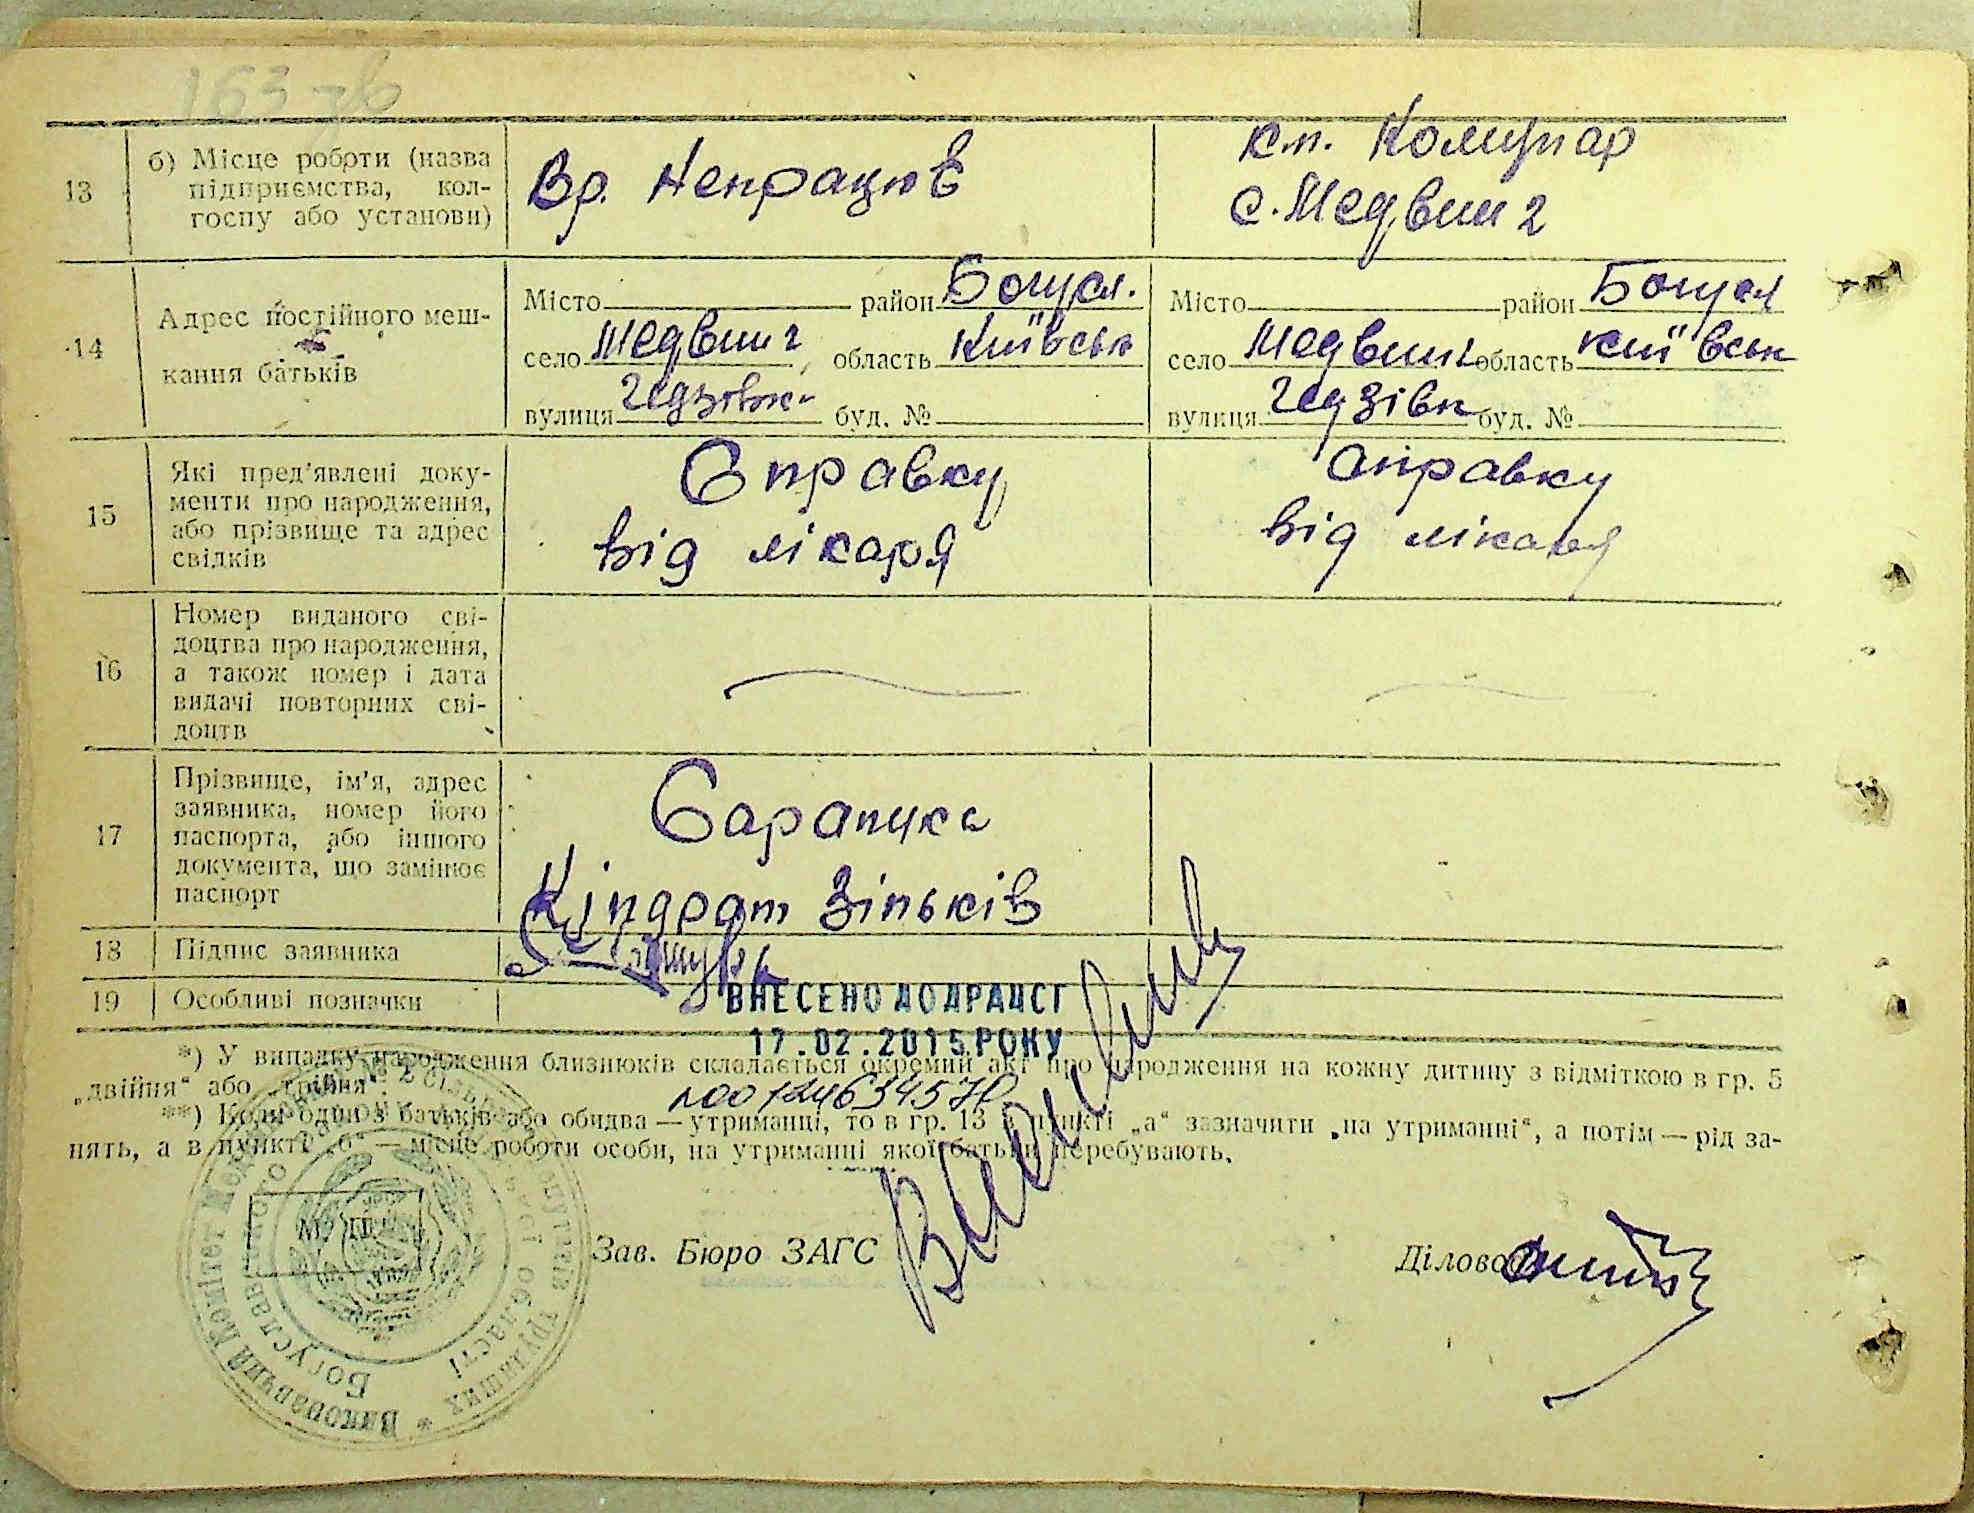 163 зв
13
б) Місце роботи (назва підприємства, кол-
госпу або установи)
Вр. Непрацює
к-п. Комунар
с. Медвин 2
14
Адрес постійного меш-
кання батьків
Місто район Богусл.
село Медвин 2, область Київськ
вулиця Гедзівк буд. №
Місто район Богусл
село Медвин 2 область Київськ
вулиця Гедзівк буд. №
15
Які пред'явлені доку-
менти про народження,
або прізвище та адрес
свідків
Справку
від лікаря
Справку
від лікаря
16
Номер виданого сві-
доцтва про народження,
а також номер і дата
видачі повторних сві-
доцтв
17
Прізвище, ім'я, адрес
заявника, номер його
паспорта, або іншого
документа, що замінює
паспорт
Сарапука
Кіндрат Зіньків
18
Підпис заявника
19
Особливі позначки
ВНЕСЕНО ДО ДРАЦСГ
17.02.2015 РОКУ
*) У випадку народження близнюків складається окремий акт про народження на кожну дитину з відміткою в гр. 5
„двійня“ або „трійня“.
№00124634570
**) Коли один з батьків або обидва — утриманці, то в гр. 13 в пункті „а“ зазначити „на утриманні“, а потім — рід за-
нять, а в пункті „б“ — місце роботи особи, на утриманні якої батьки перебувають.
М. П.
Зав. Бюро ЗАГС
Діловод
Виконавчий Комітет депутатів трудящих
Богуславського області